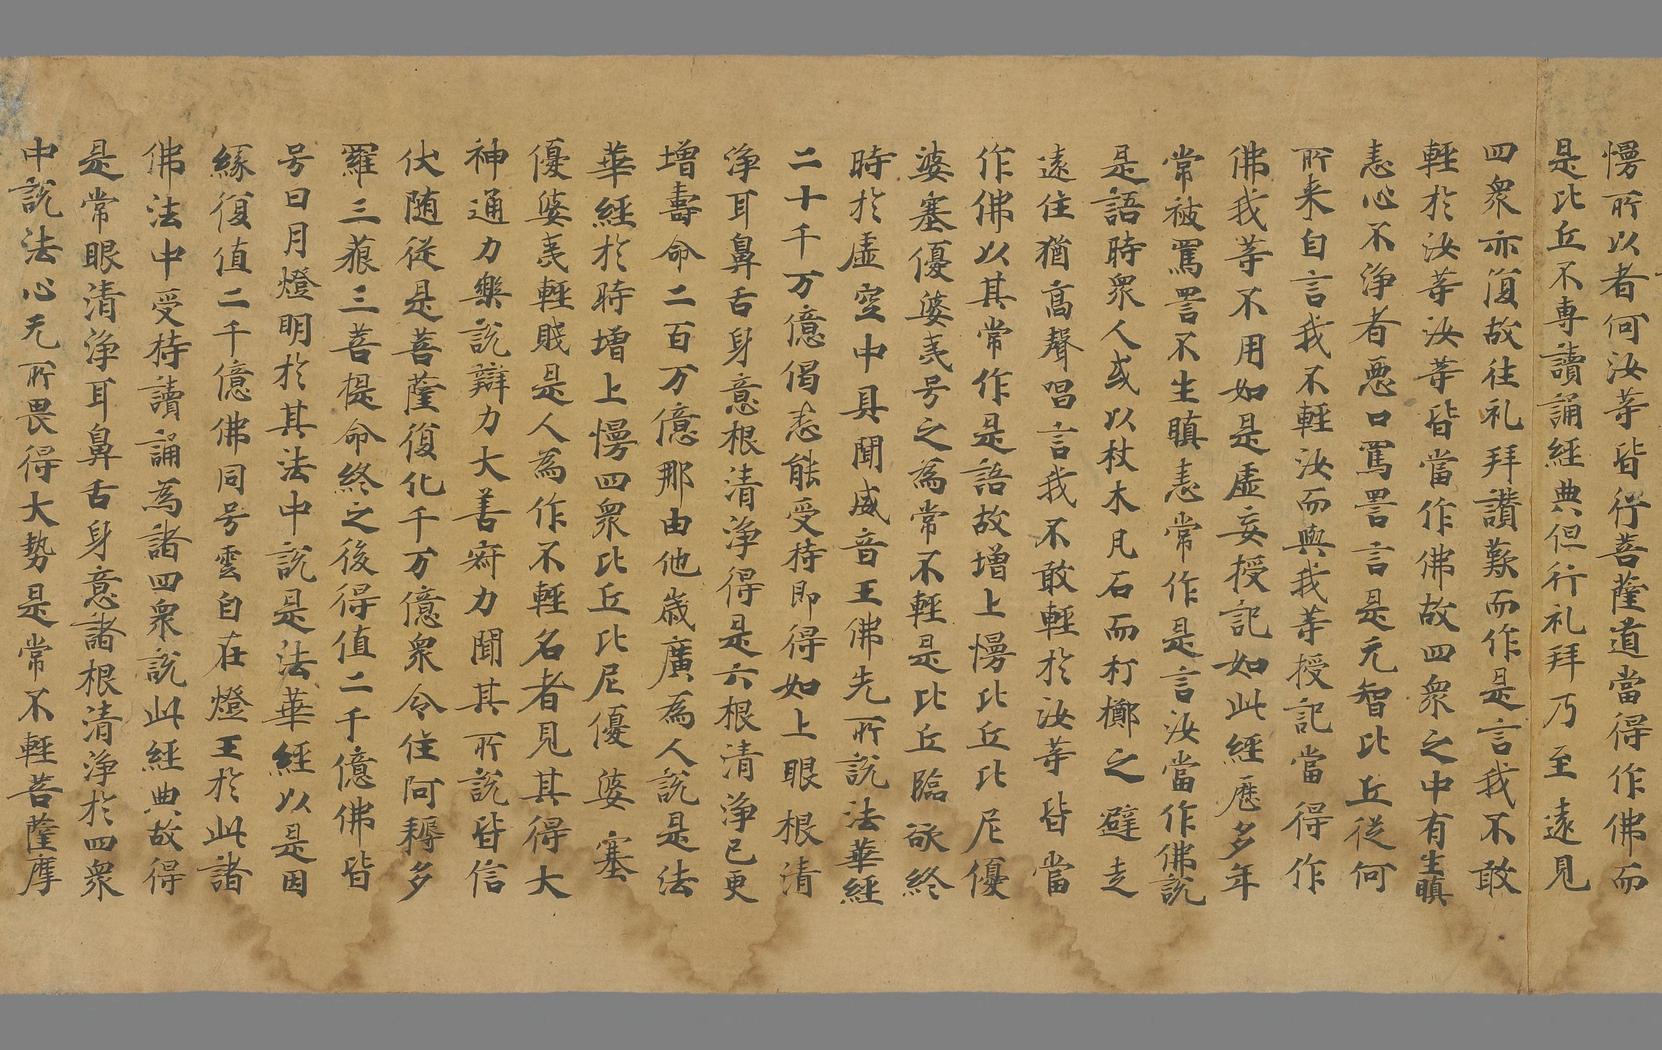 慢所以者何汝等皆行菩薩道當得作佛而
是比丘不専讀誦經典但行礼拜乃至遠見
四衆亦復故往礼拜讃歎而作是言我不敢
輕於汝等汝等皆當作佛故四衆之中有生瞋
恚心不淨者悪口罵詈言是无智比丘従何
所来自言我不輕汝而與我等授記當得作
佛我等不用如是虚妄授記如此經歴多年
常被罵詈不生瞋恚常作是言汝當作佛說
是語時衆人或以杖木凡石而打擲之避走
遠住猶髙聲唱言我不敢輕於汝等皆當
作佛以其常作是語故増上慢比丘比尼優
婆塞優婆夷号之為常不輕是比丘臨欲終
時於虚空中具聞威音王佛先所說法華經
二十千万億偈悉能受持即得如上眼根清
淨耳鼻舌身意根清淨得是六根清淨已更
増壽命二百万億那由他歳廣為人說是法
華經於時増上慢四衆比丘比尼優婆塞
優婆夷輕賤是人為作不輕名者見其得大
神通力樂說辯力大善寂力聞其所說皆信
伏随従是菩薩復化千万億衆令住阿耨多
羅三藐三菩提命終之後得值二千億佛皆
号日月燈明於其法中說是法華經以是因
緣復值二千億佛同号雲自在燈王於此諸
佛法中受持讀誦為諸四衆說此經典故得
是常眼清淨耳鼻舌身意諸根清淨於四衆
中說法心无所畏得大勢是常不輕菩薩摩